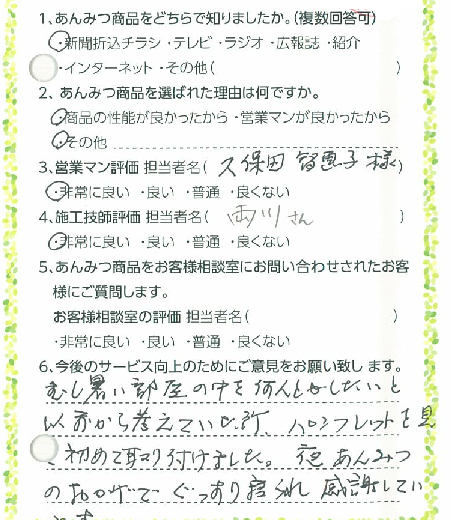 1、あんみつ商品をどちらで知りましたか。(複数回答可)
・新聞折込チラシ ・テレビ ・ラジオ ・広報誌 ・紹介
・インターネット ・その他( )
2、あんみつ商品を選ばれた理由は何ですか。
・商品の性能が良かったから ・営業マンが良かったから
・その他
3、営業マン評価 担当者名( 久保田 智恵子 様 )
・非常に良い ・良い ・普通 ・良くない
4、施工技師評価 担当者名( 雨川 さん )
・非常に良い ・良い ・普通 ・良くない
5、あんみつ商品をお客様相談室にお問い合わせされたお客
様にご質問します。
お客様相談室の評価 担当者名( )
・非常に良い ・良い ・普通 ・良くない
6、今後のサービス向上のためにご意見をお願い致し ます。
むし暑い部屋の中を何んとかしたいと
以前から考えていた所、パンフレットを見
、初めて取り付けました。夜あんみつ
のおかげで ぐっすり寝られ 感謝してい
ます